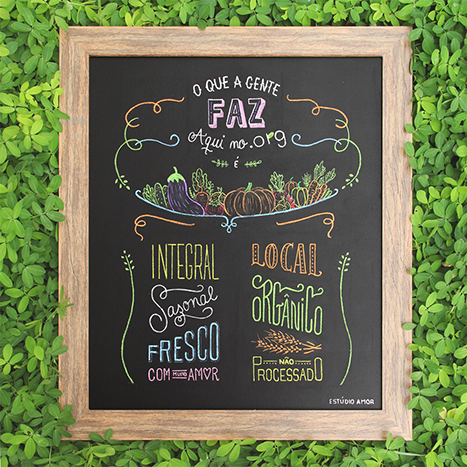 O QUE A GENTE
FAZ
Aqui no .org
É
INTEGRAL
Sazonal
FRESCO
COM MUITO AMOR
LOCAL
ORGÂNICO
NÃO
PROCESSADO
ESTÚDIO AMOR